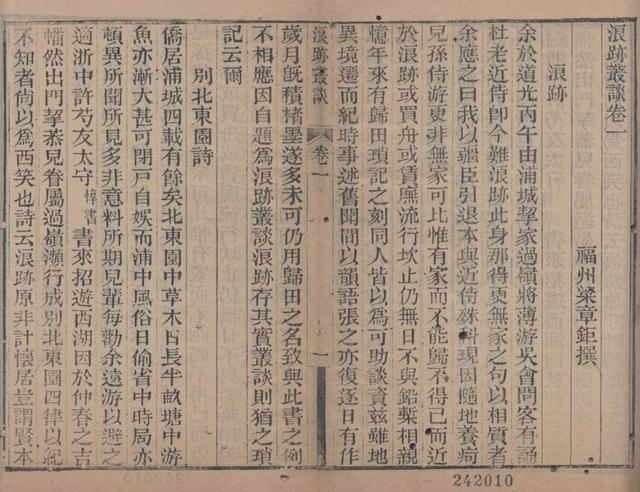 浪跡叢談卷一
福州梁章鉅撰
浪跡
余於道光丙午由浦城挈家過嶺將薄游吳會問客有誦
杜老近侍卽今難浪跡此身那得更無家之句以相質者
余應之曰我以疆臣引退本與近侍殊科現因隨地養疴
兒孫侍游更非無家可比惟有家而不能歸不得已而近
於浪跡或買舟或賃廡流行坎止仍無日不與鉛槧相親
憶年來有歸田瑣記之刻同人皆以爲可助談資茲雖地
異境遷而紀時事述舊聞間以韻語張之亦復逐日有作
浪跡叢談
卷一
一
歲月旣積楮墨遂多未可仍用歸田之名致與此書之例
不相應因自題爲浪跡叢談浪跡存其實叢談則猶之瑣
記云爾
別北東園詩
僑居浦城四載有餘矣北東園中草木日長半畝塘中游
魚亦漸大甚可閉戸自娱而浦中風俗日偷省中時局亦
頓異所聞所見多非意料所期兒輩每勸余遠游以避之
適浙中許芍友太守
惇書
書來招遊西湖因於仲春之吉
幡然出門挈恭兒眷屬過嶺瀕行成別北東園四律以紀
不知者尙以爲西笑也詩云浪跡原非計懷居豈謂賢本
242010